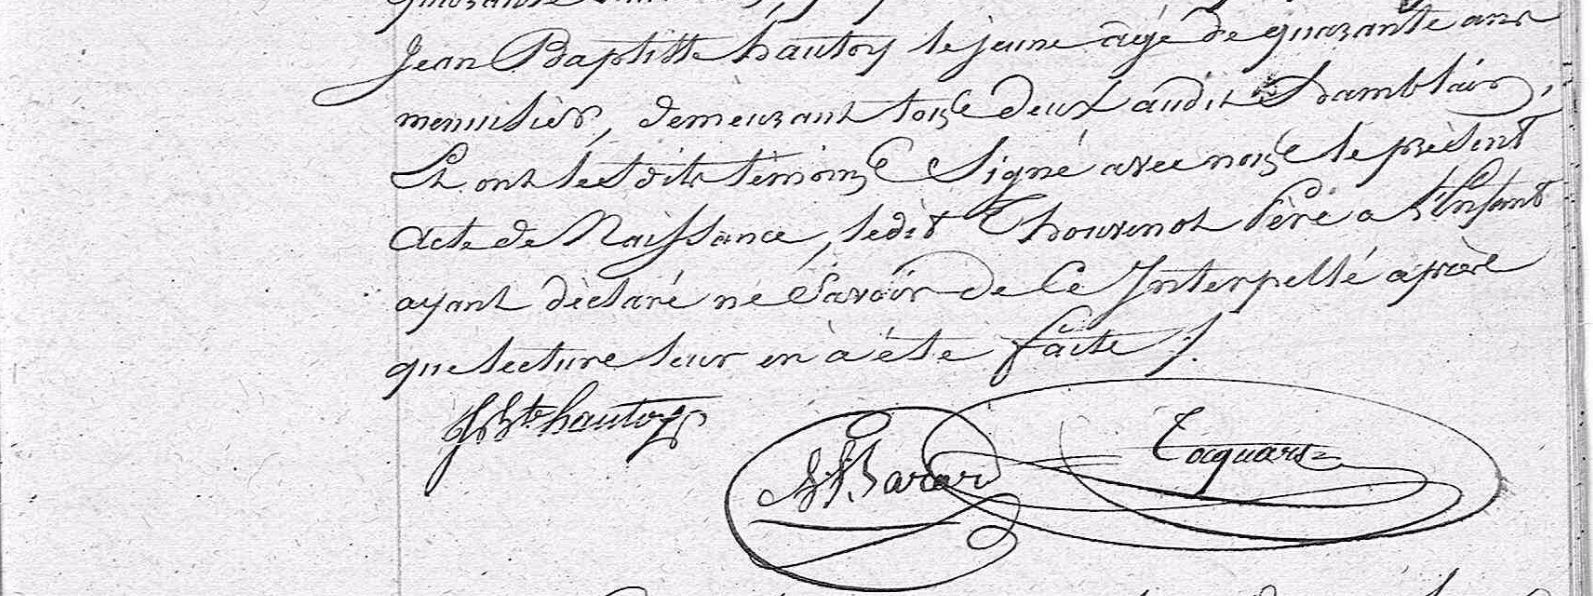 Jean Baptiste hautoy le jeune agé de quarante ans
menuisier, demeurant tous deux audit Chamblair,
Et ont lesdits témoins Signé avec nous le présent
Acte de Naissance, ledit Thouvenot Père a l'Enfant
ayant déclaré né Savoir de Ce Interpellé après
que lecture leur en à été faite /.
JBte hautoy
Tocquart